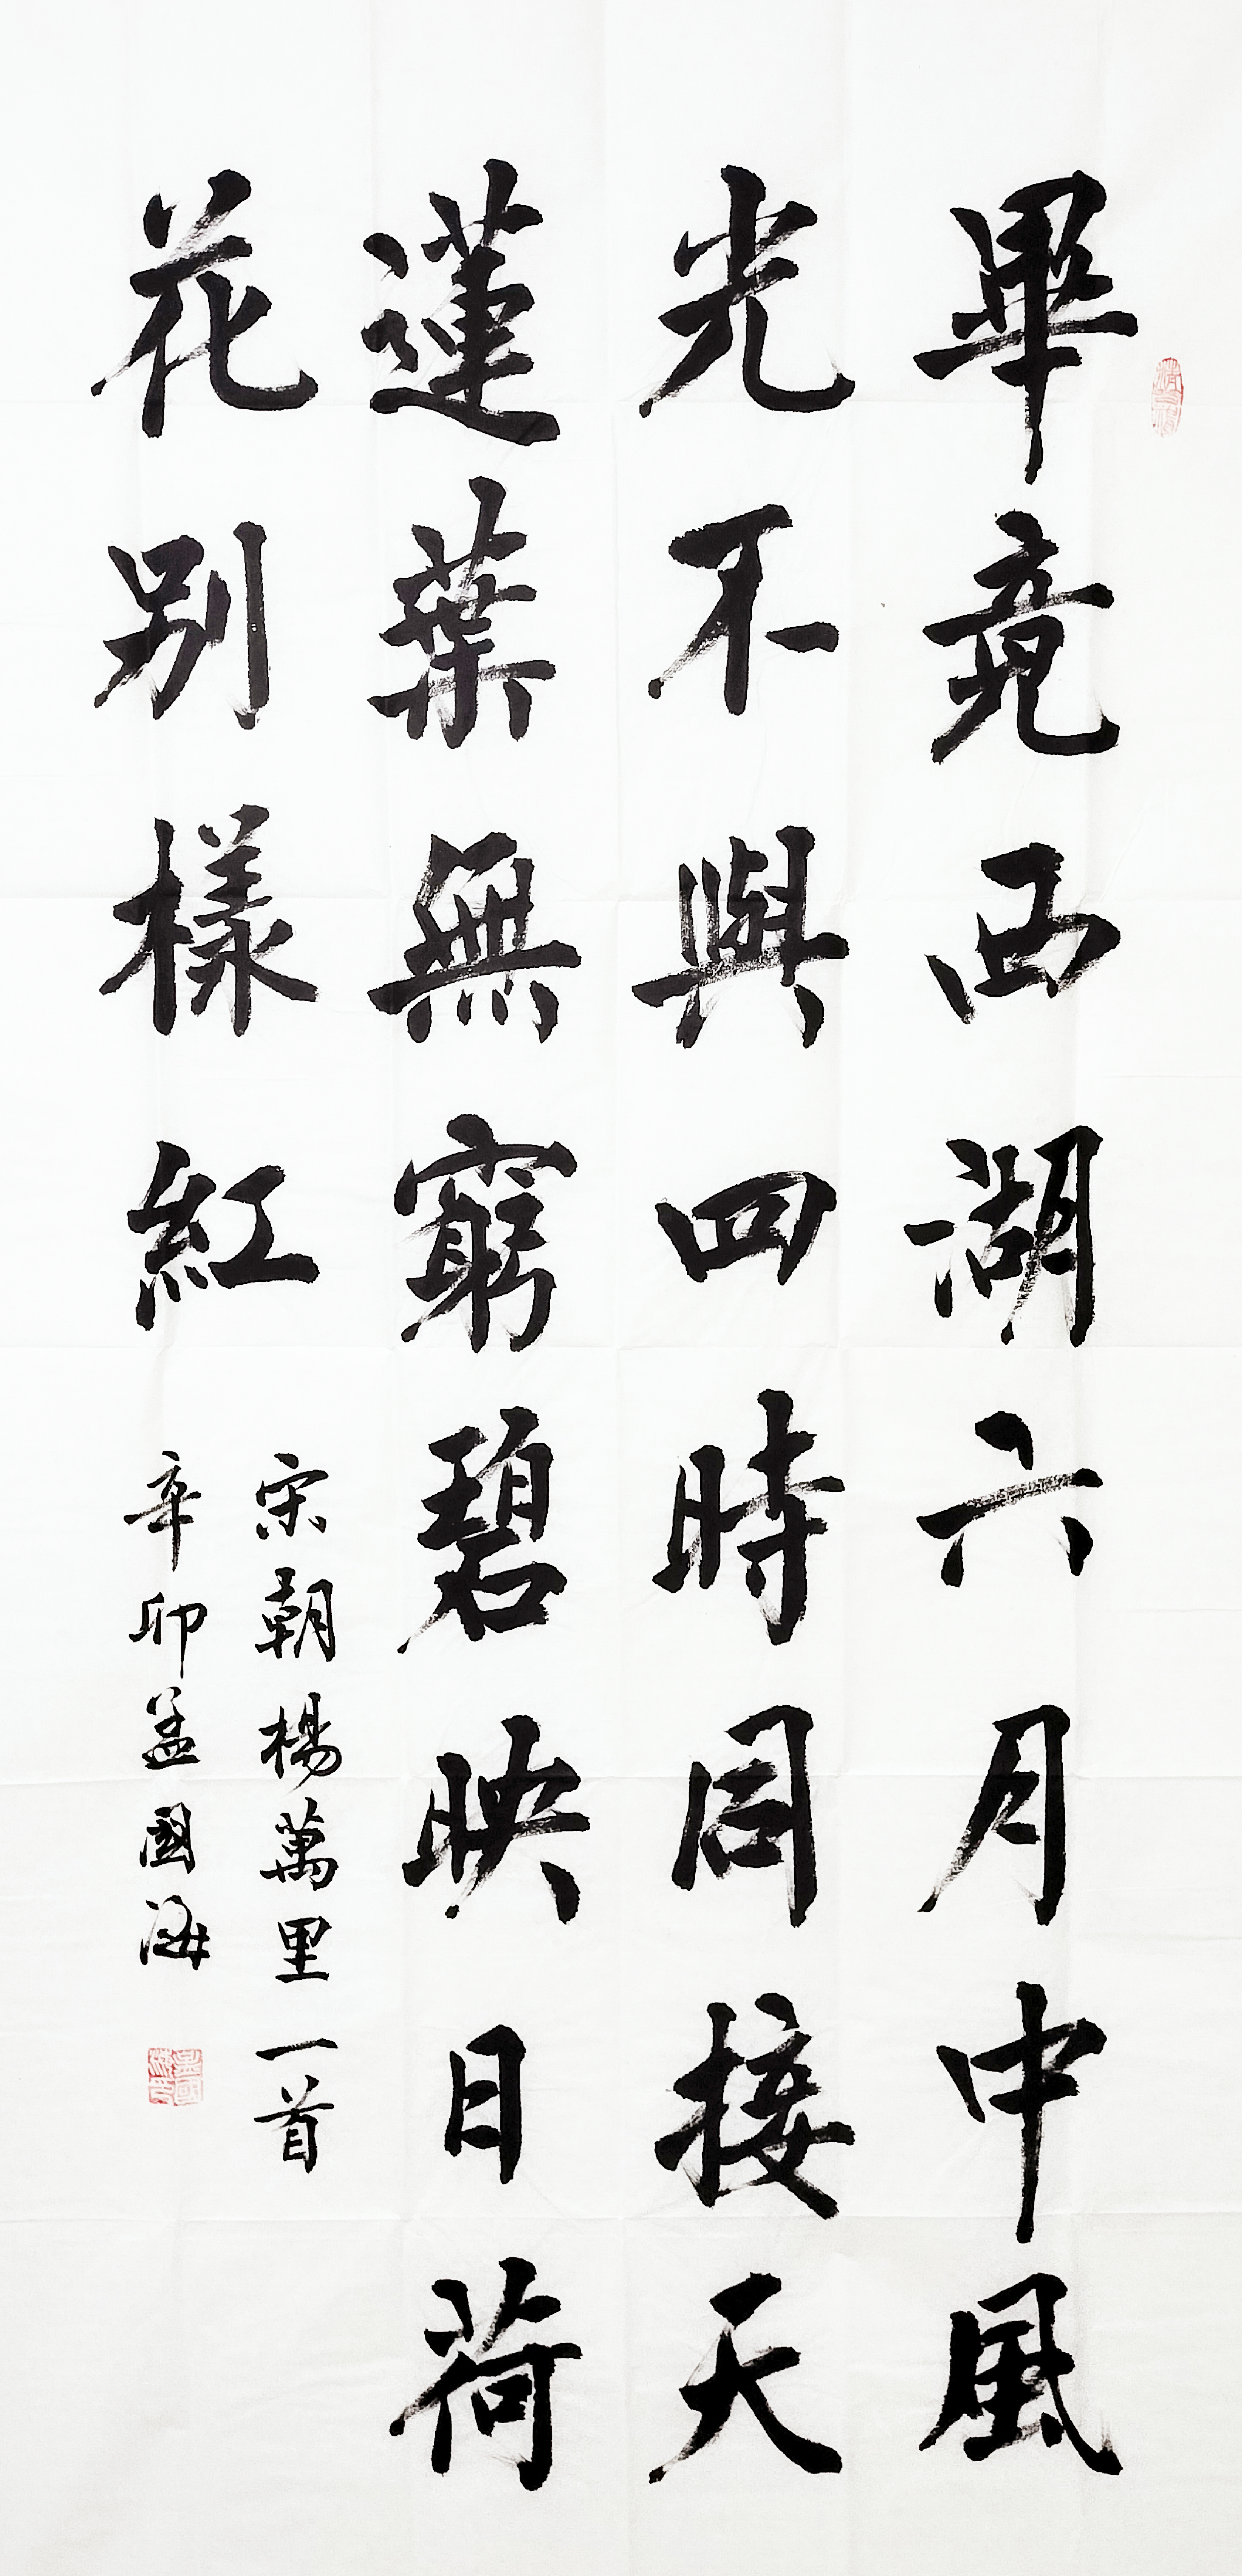 畢竟西湖六月中風
光不與四時同接天
蓮葉無窮碧映日荷
花別樣紅
宋朝楊萬里一首
辛卯孟國海